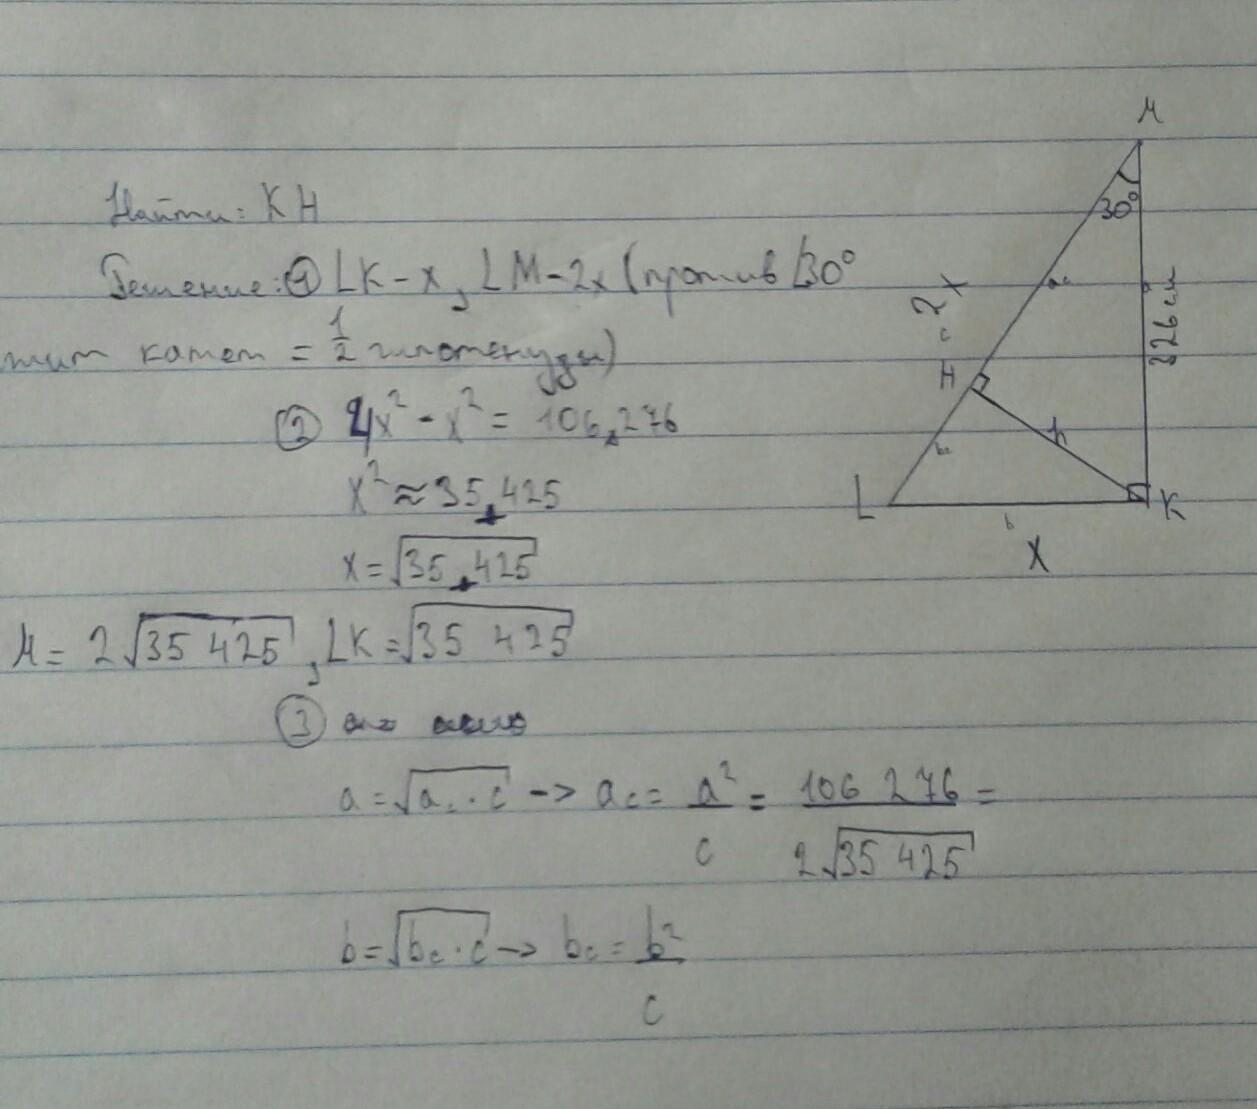 Найти: KH
Решение: ① LK-x, LM-2x (против ∠30°
жит катет = 1/2 гипотенузы)
② 4x² - x² = 106,276
x² ≈ 35,425
x = √35,425
M = 2√35 425, LK = √35 425
③
a = √a_c · c -> a_c = a²/c = 106 276 / 2√35 425 =
b = √b_c · c -> b_c = b²/c
M
30°
2x
c
a_c
326 см
H
h
b_c
L
K
b
X